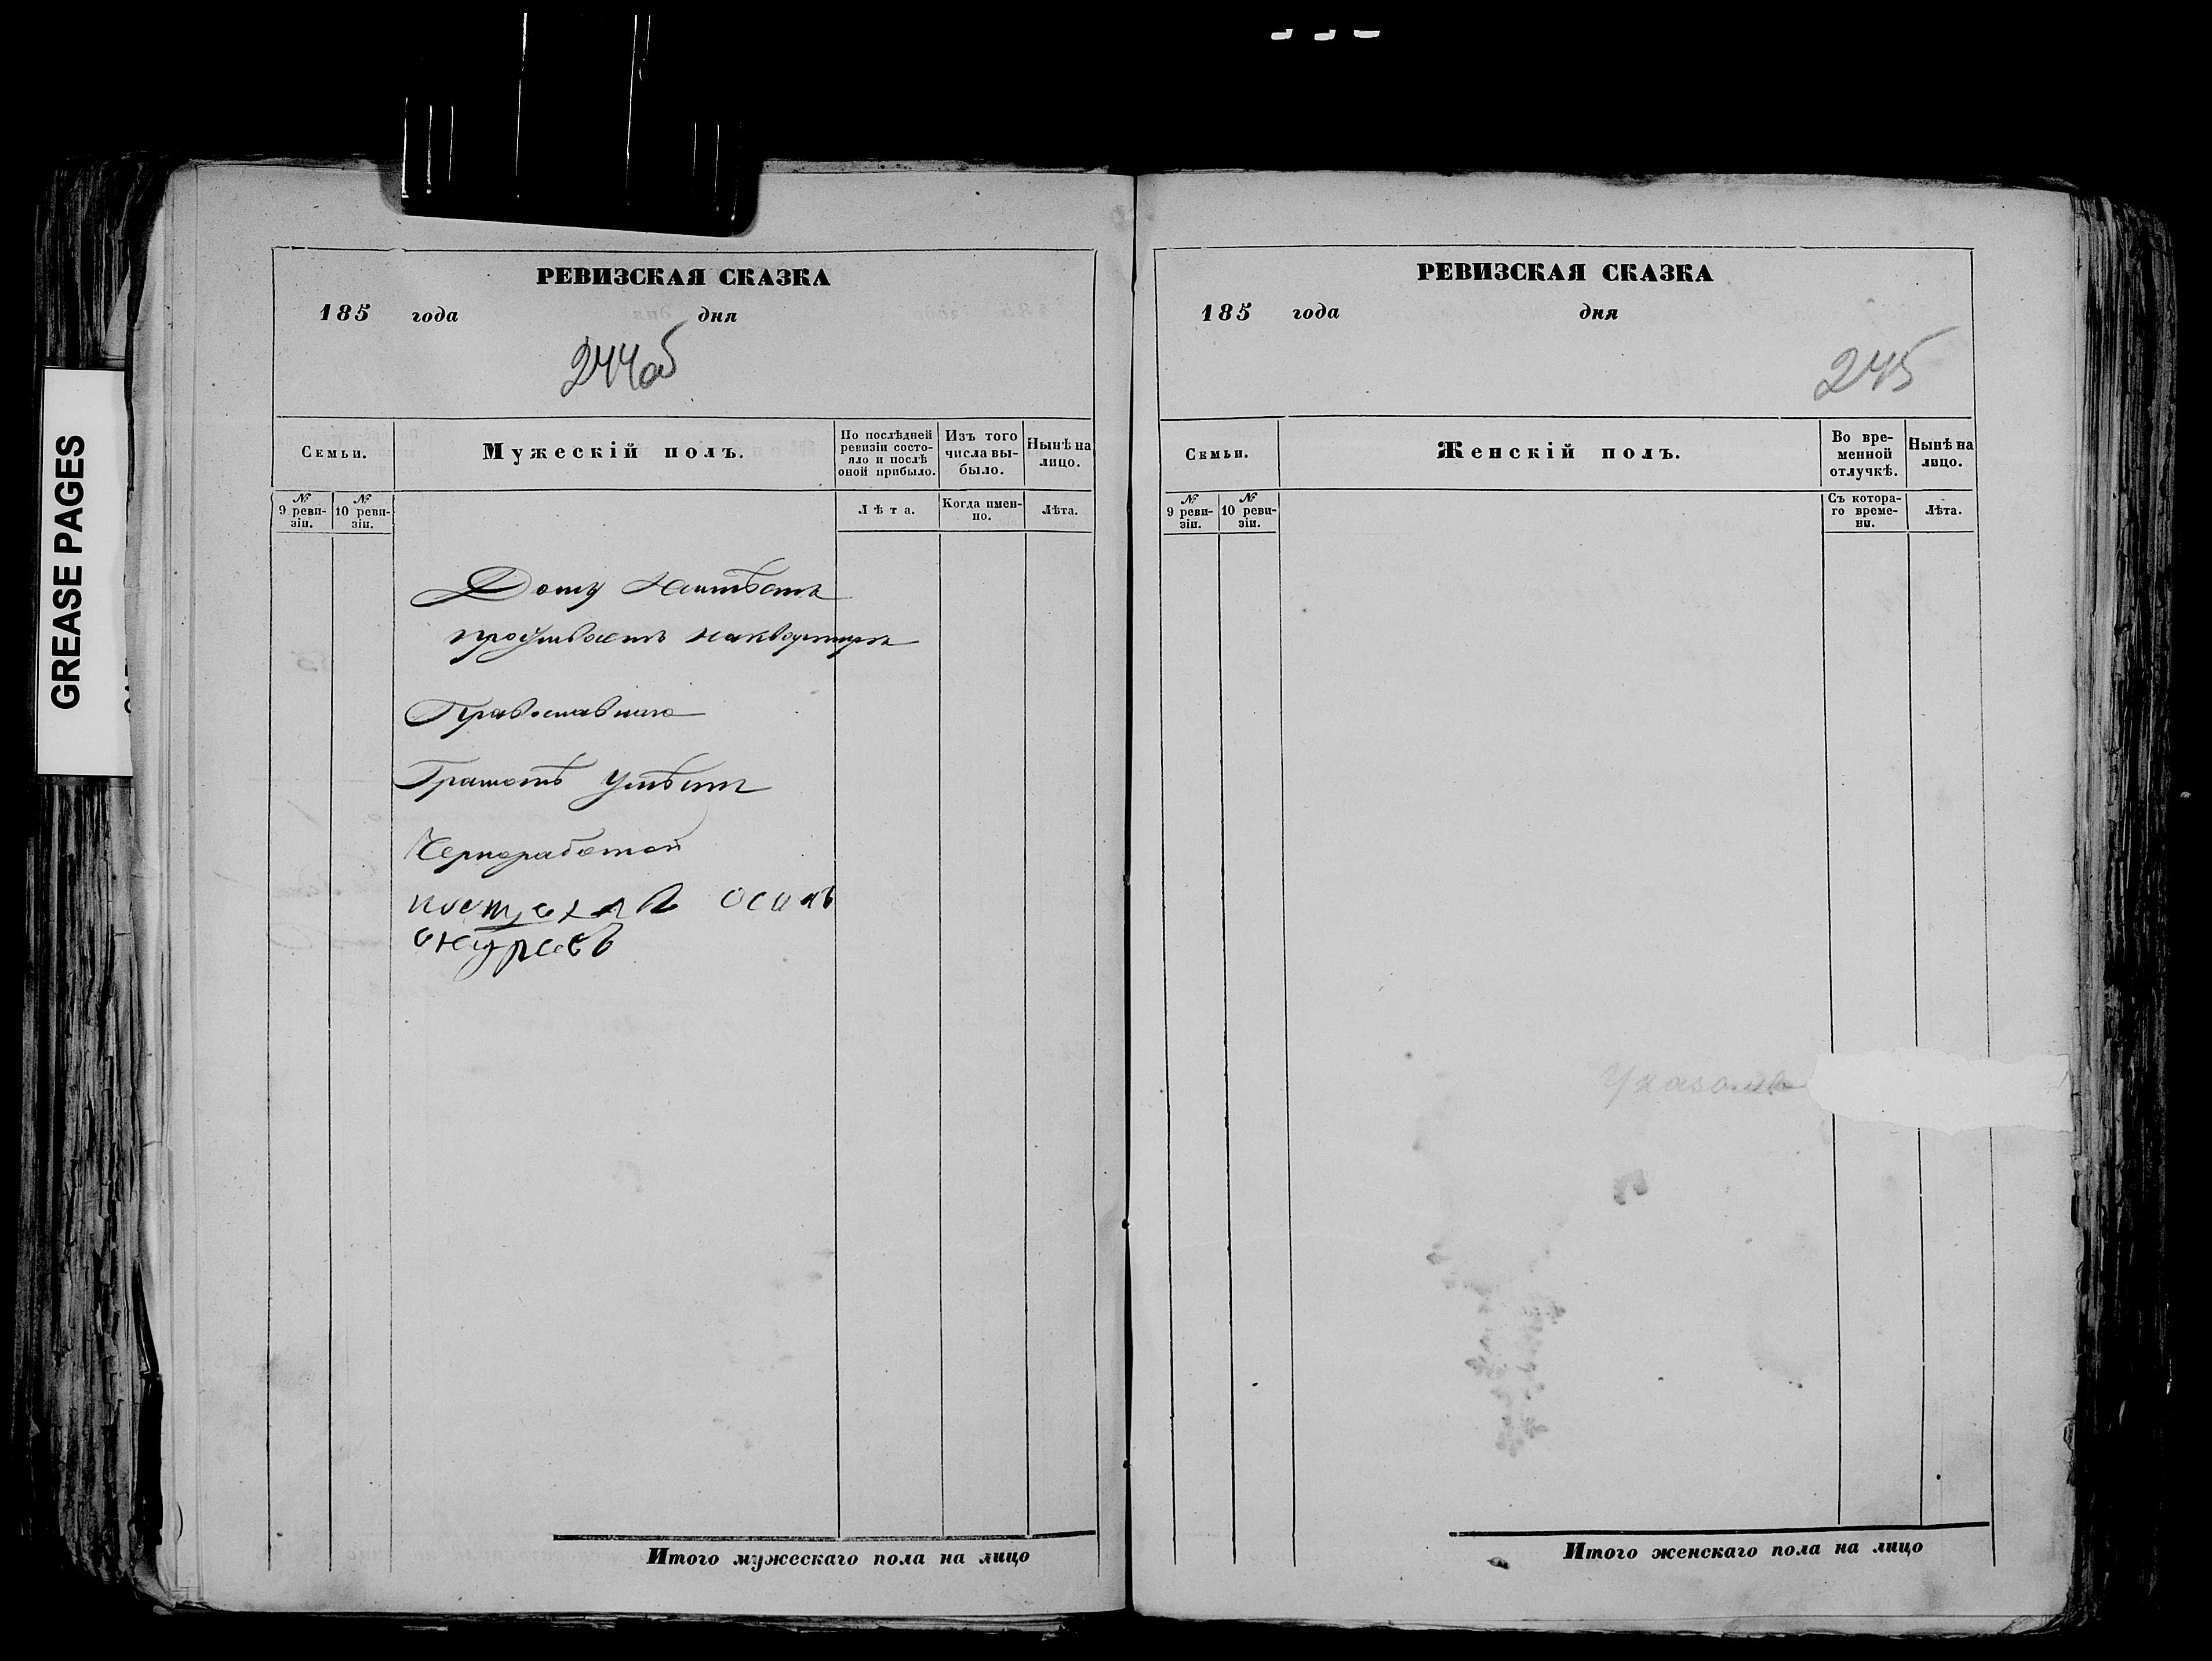 GREASE PAGES
РЕВИЗСКАЯ СКАЗКА
185 года дня
244об
Семьи.
Мужескій полъ.
По послѣдней ревизіи состояло и послѣ оной прибыло.
Изъ того числа выбыло.
Нынѣ на лицо.
№ 9 ревизіи.
№ 10 ревизіи.
Лѣта.
Когда именно.
Лѣта.
Дому Неимѣетъ
проживаетъ наквартире
Православнаго
Грамотѣ Умѣетъ
Черноработой
осипъ
Итого мужескаго пола на лицо
РЕВИЗСКАЯ СКАЗКА
185 года дня
245
Семьи.
Женскій полъ.
Во временной отлучкѣ.
Нынѣ на лицо.
№ 9 ревизіи.
№ 10 ревизіи.
Съ котораго времени.
Лѣта.
Итого женскаго пола на лицо